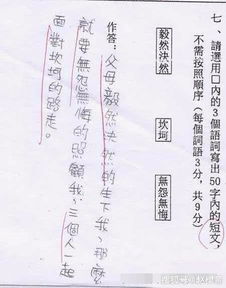 七、請選用口內的3個語詞寫出50字內的短文，
不需按照順序（每個詞語3分，共9分）
毅然決然
坎坷
無怨無悔
作答：父母毅然決然的生下我，那麼
就要無怨無悔的照顧我，三個人一起
面對坎坷的路走。